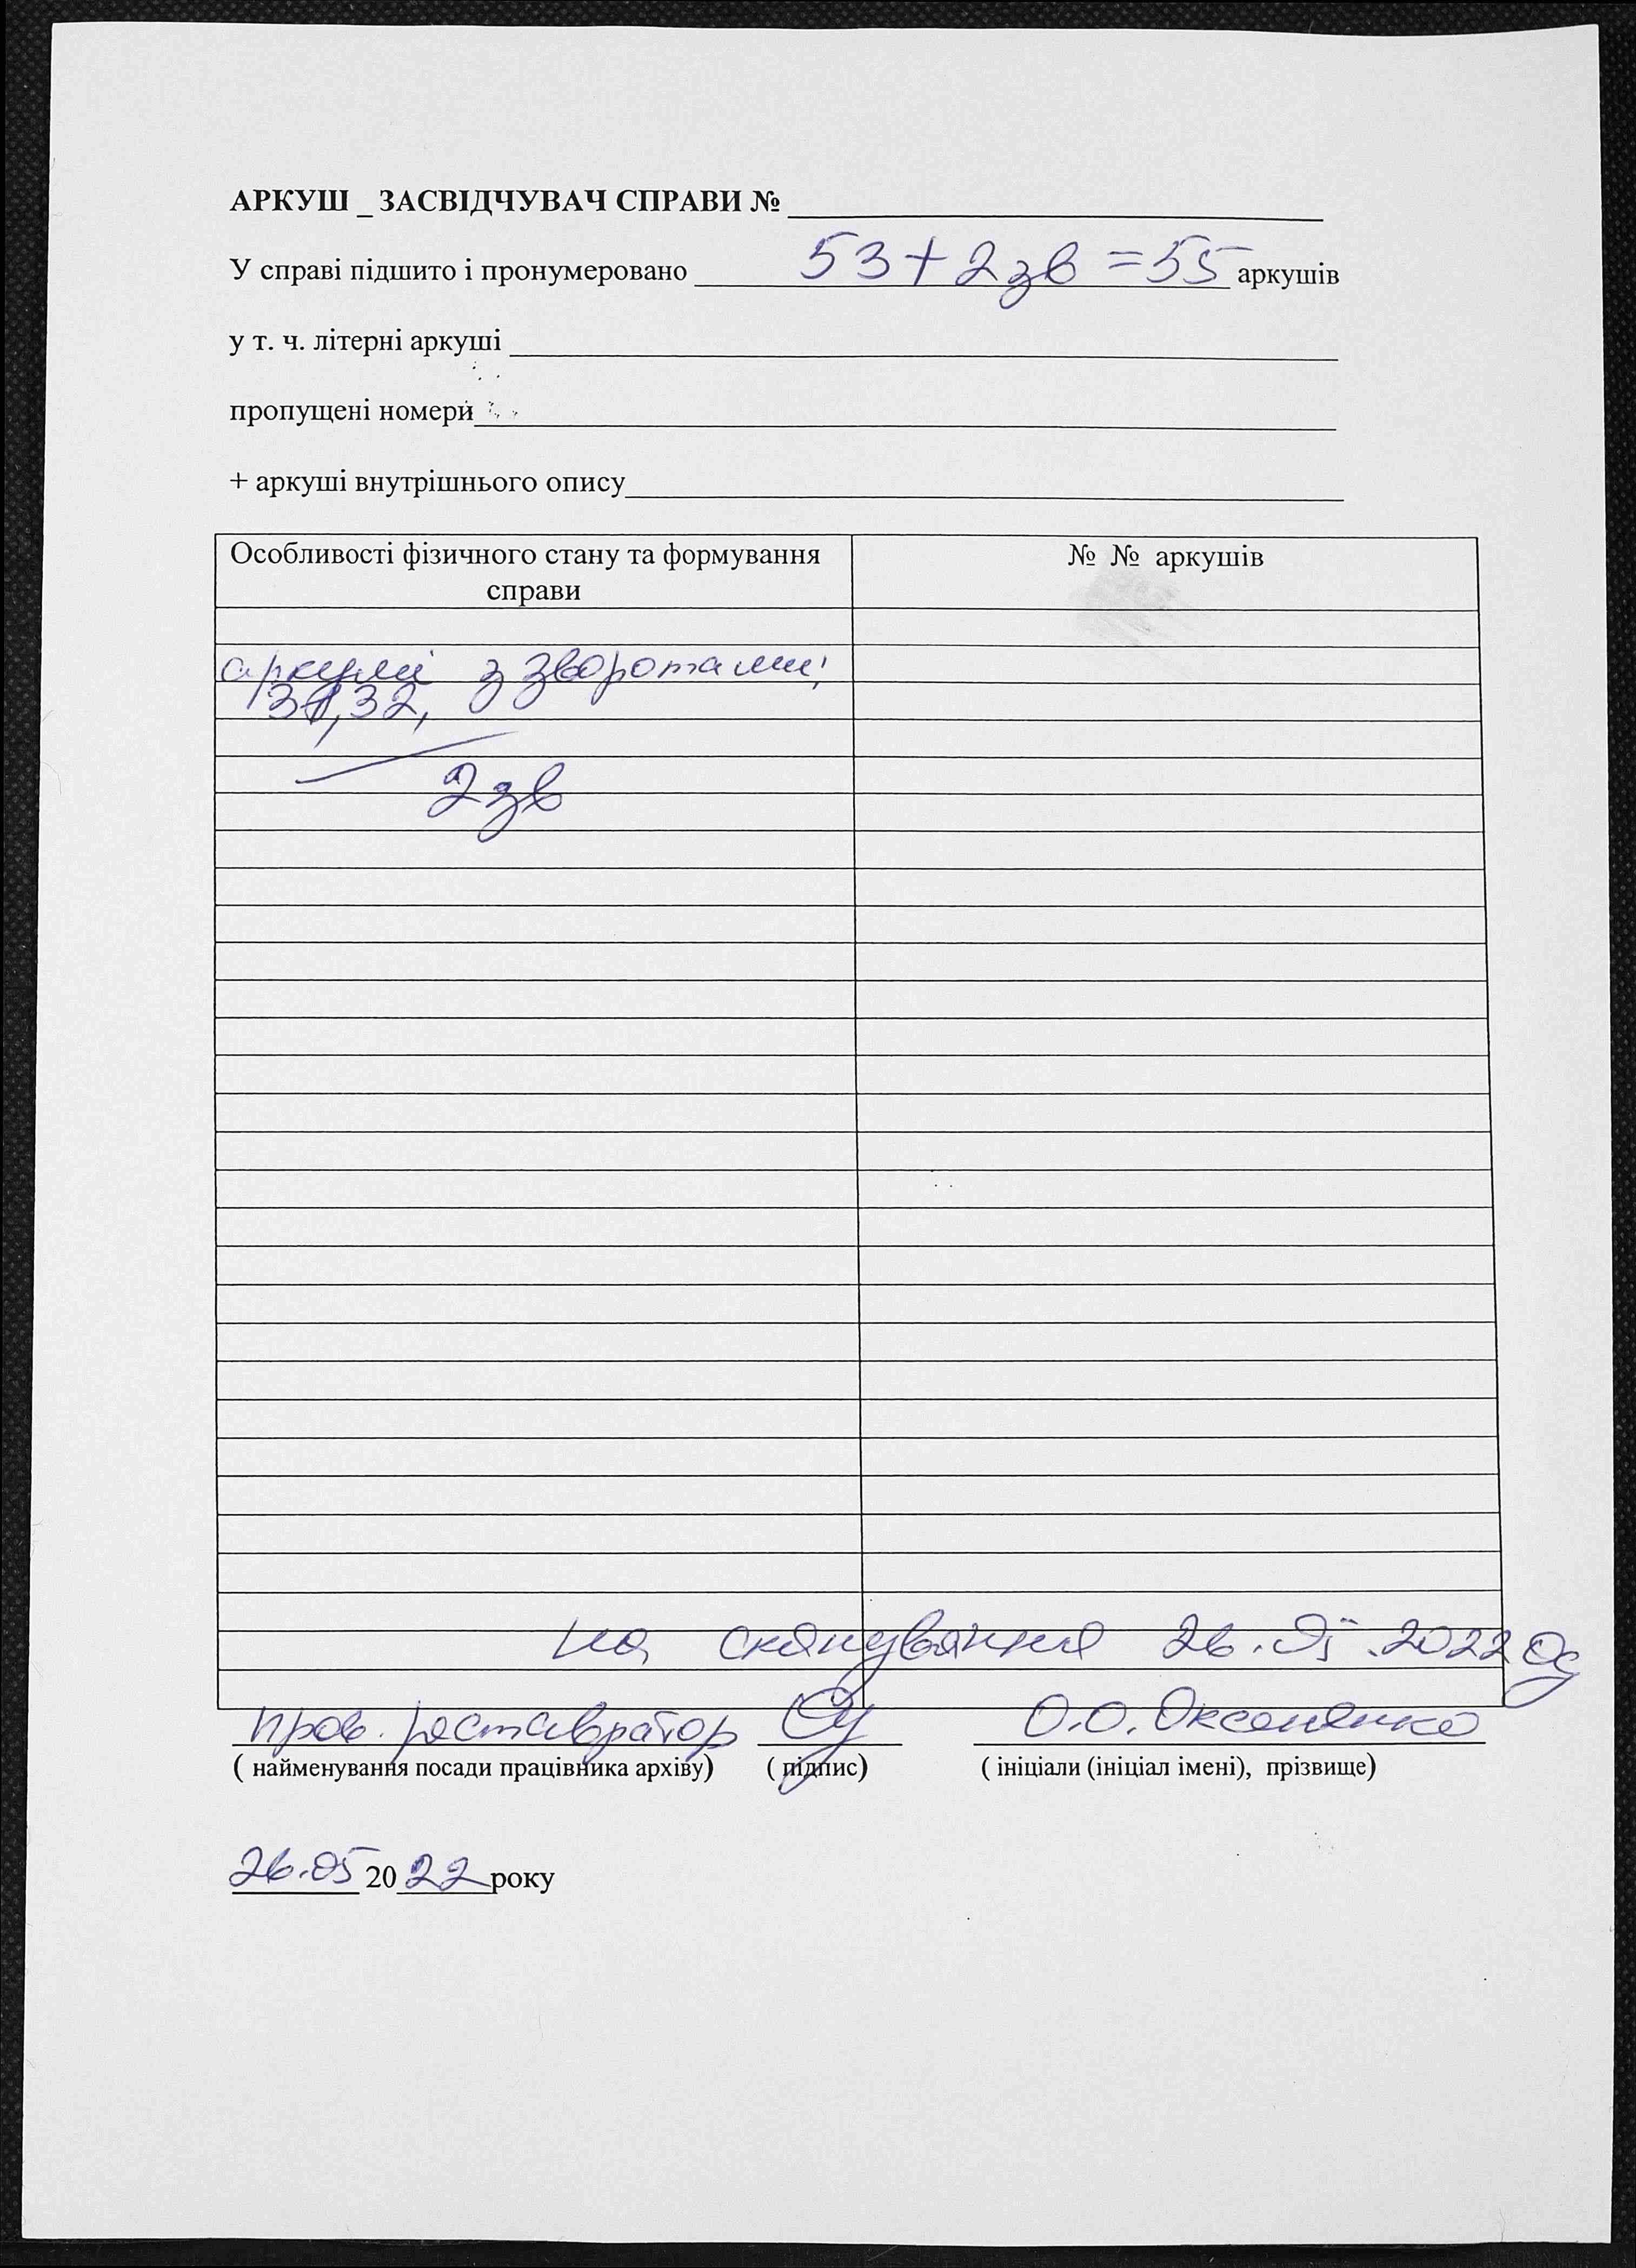 АРКУШ _ ЗАСВІДЧУВАЧ СПРАВИ №
У справі підшито і пронумеровано 53+2зв=55 аркушів
у т. ч. літерні аркуші
пропущені номери
+ аркуші внутрішнього опису
Особливості фізичного стану та формування справи
№ № аркушів
аркуші з зворотами:
31,32,
2зв
на сканування 26.05.2022
пров. реставратор О.О. Оксененко
( найменування посади працівника архіву) ( підпис) ( ініціали (ініціал імені), прізвище)
26.05 2022 року